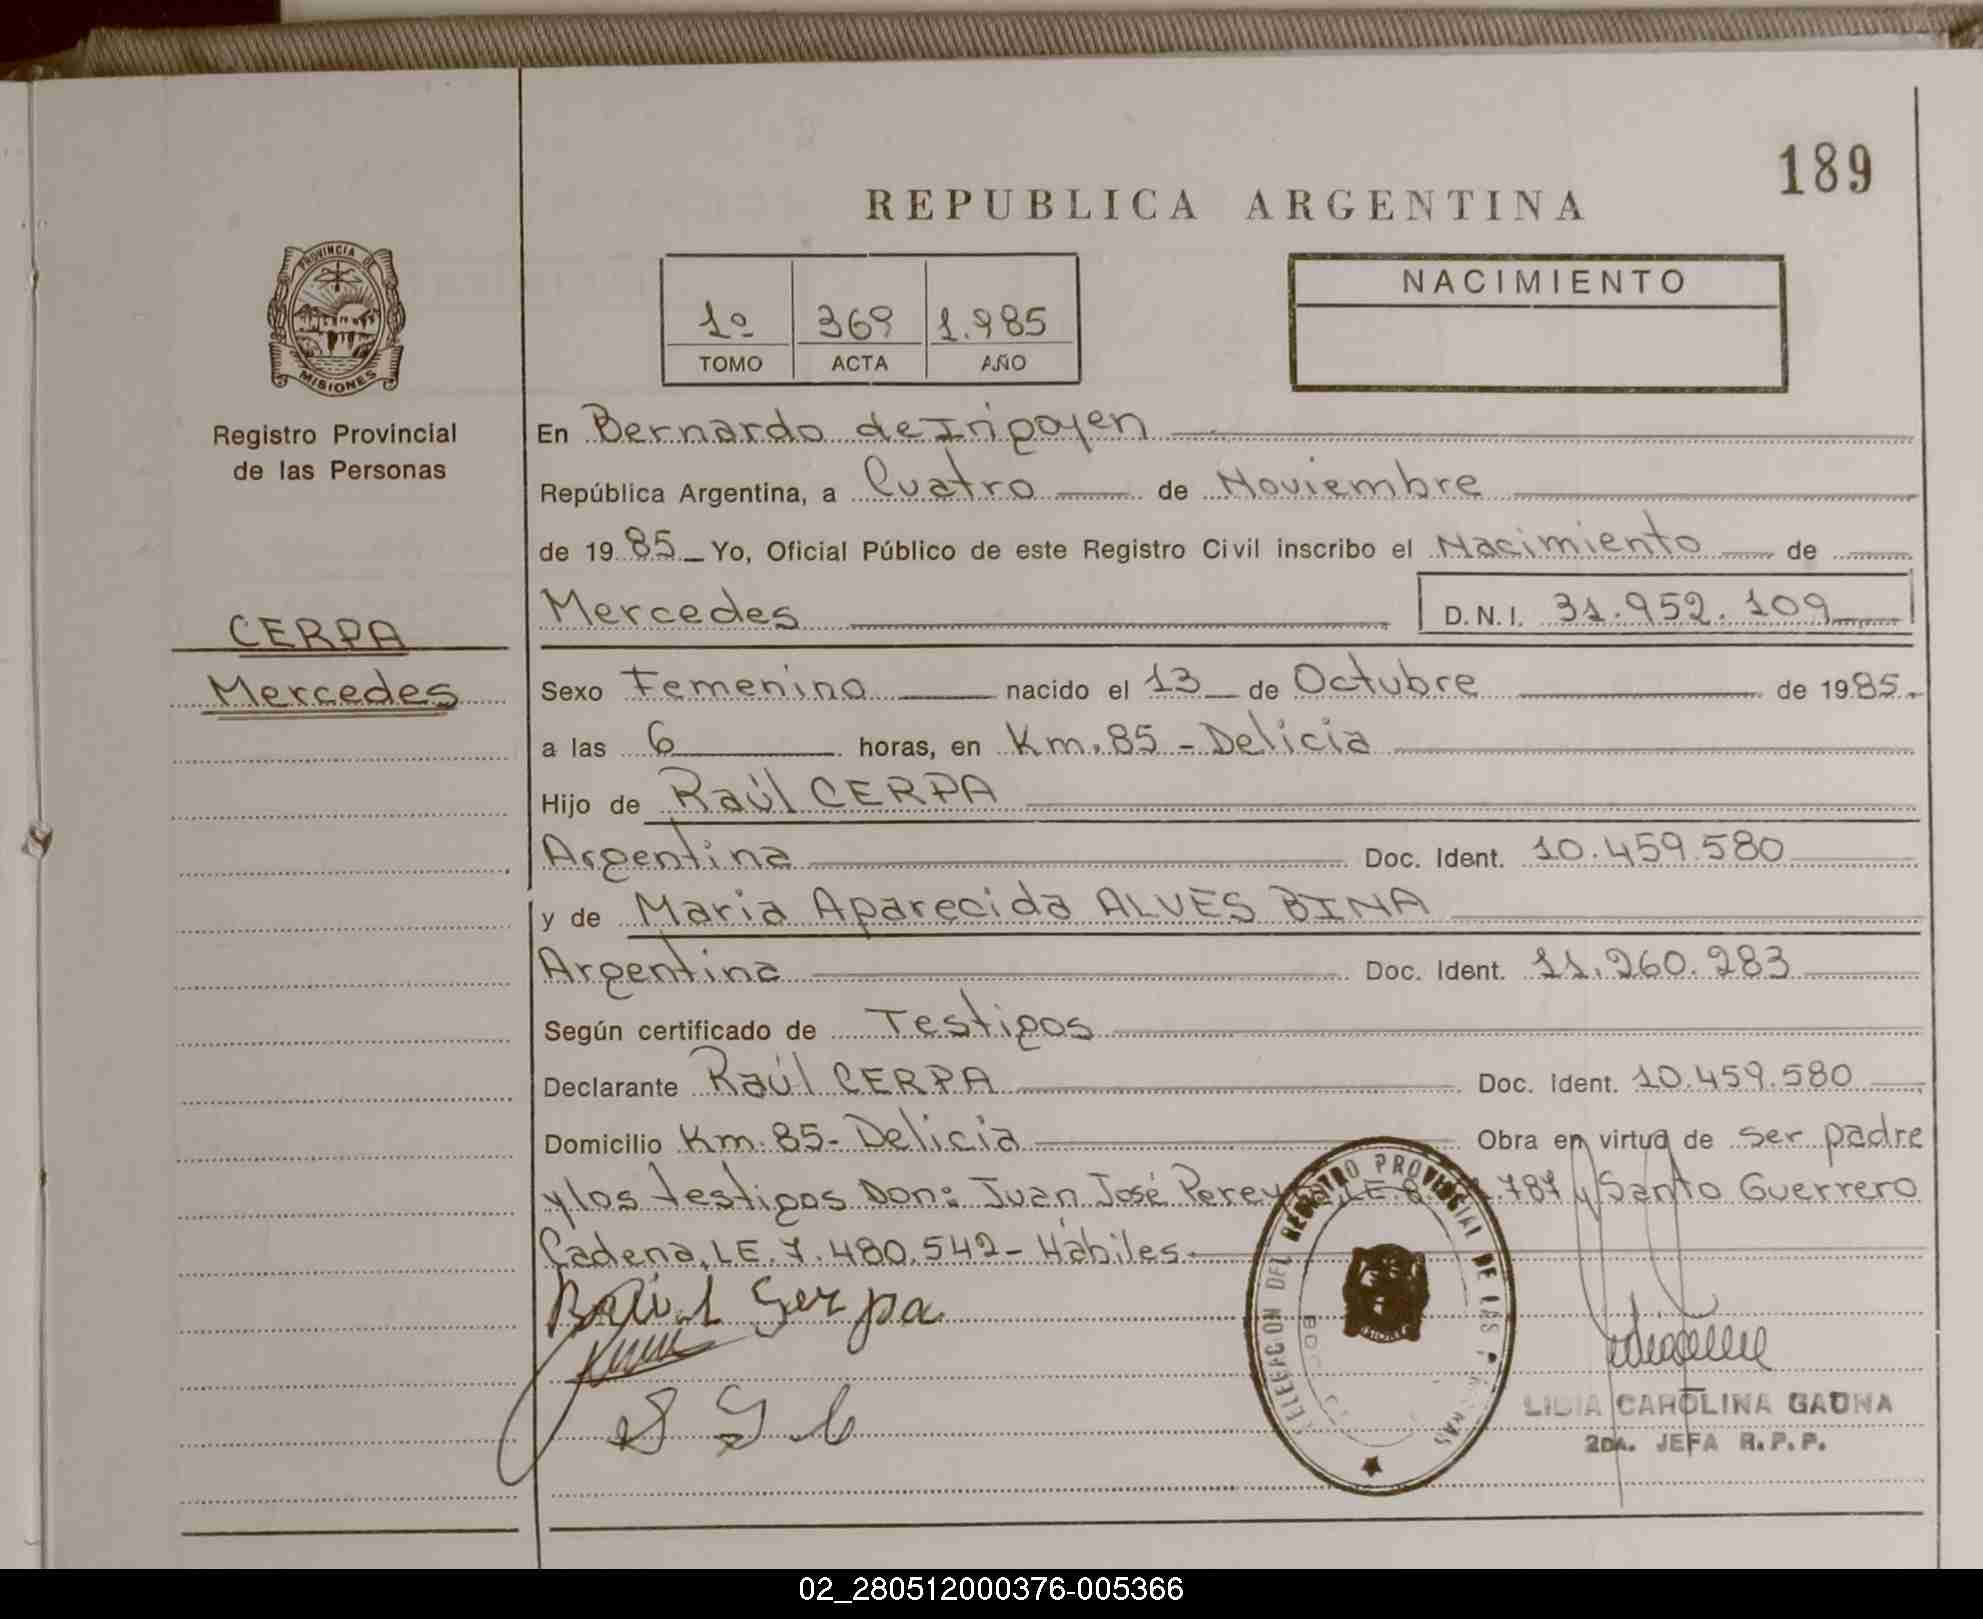 189
REPUBLICA ARGENTINA
PROVINCIA DE
MISIONES
Registro Provincial
de las Personas
1º 369 1.985
TOMO ACTA AÑO
NACIMIENTO
En Bernardo de Irigoyen
República Argentina, a Cuatro de Noviembre
de 1985 Yo, Oficial Público de este Registro Civil inscribo el Nacimiento de
Mercedes D.N.I. 31.952.109
CERPA
Mercedes
Sexo Femenino nacido el 13 de Octubre de 1985.
a las 6 horas, en Km.85 - Delicia
Hijo de Raúl CERPA
Argentina Doc. Ident. 10.459.580
y de Maria Aparecida ALVES BINA
Argentina Doc. Ident. 11.260.283
Según certificado de Testigos
Declarante Raúl CERPA Doc. Ident. 10.459.580
Domicilio Km.85- Delicia Obra en virtud de ser padre
y los testigos Don: Juan José L.E. 787 y Santo Guerrero
Cadena, L.E. 7.480.542- Hábiles.
Raúl Cerpa
S G C
DELEGACION DEL REGISTRO PROVINCIAL DE LAS PERSONAS
LIDIA CAROLINA GAUNA
2DA. JEFA R.P.P.
02_280512000376-005366